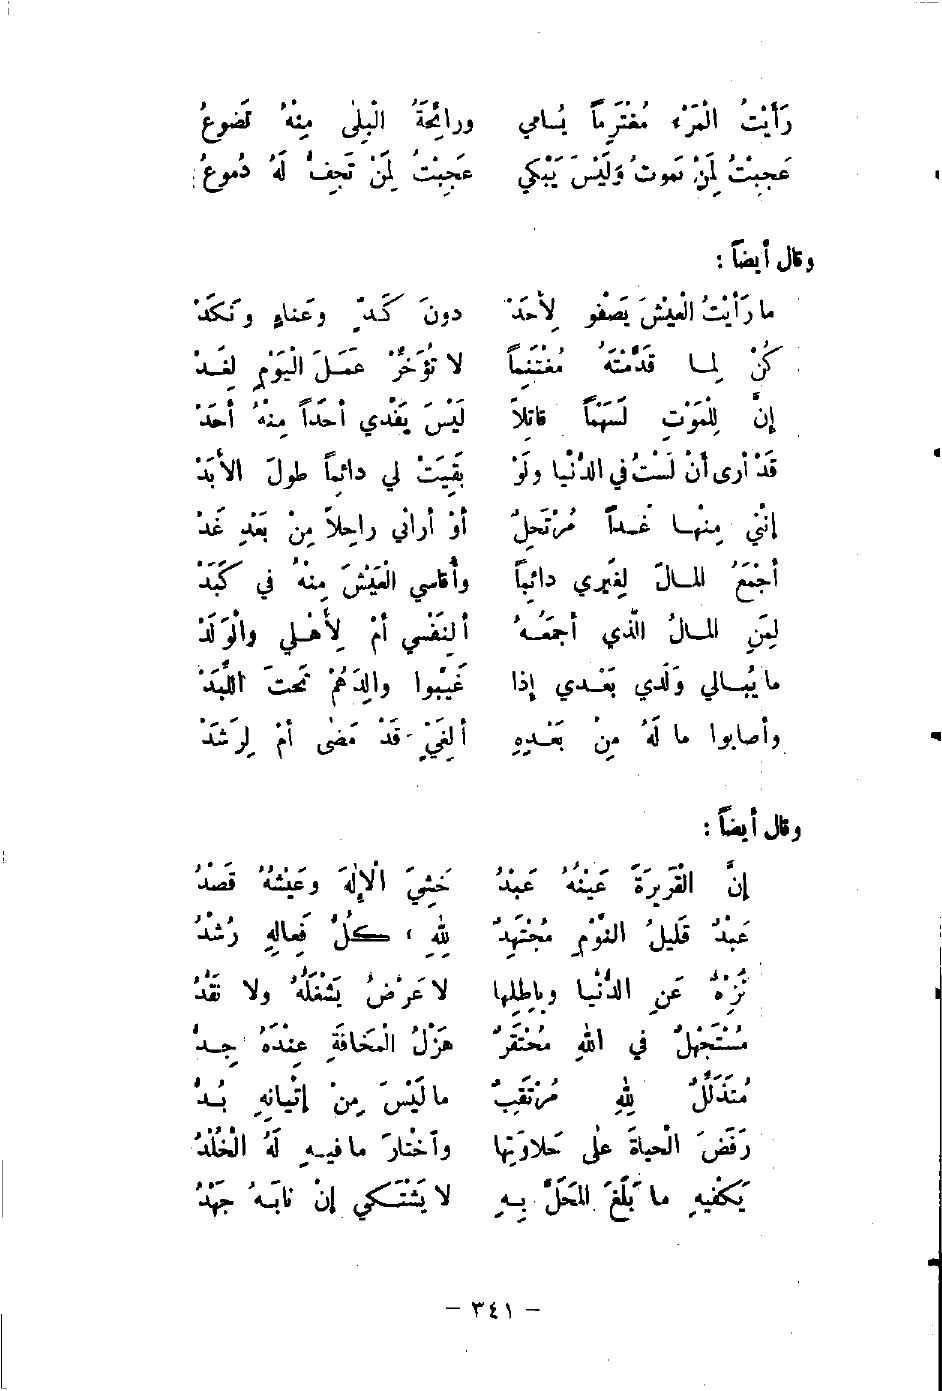 رَأَيْتُ الْمَرْءَ مُغْتَرِماً يُسامي ورائِحَةُ الْبِلٰى مِنْهُ تَضوعُ
عَجِبْتُ لِمَنْ يَموتُ وَلَيْسَ يَبْكي عَجِبْتُ لِمَنْ تَجِفُّ لَهُ دُموعُ
وقال أيضاً :
ما رَأَيْتُ الْعَيْشَ يَصْفو لِأَحَدْ دونَ كَدٍّ وعَناءٍ ونَكَدْ
كُنْ لِما قَدَّمْتَهُ مُغْتَنِماً لا تُؤَخِّرْ عَمَلَ الْيَوْمِ لِغَدْ
إنَّ لِلْمَوْتِ لَسَهْماً قاتِلاً لَيْسَ يَفْدي أَحَداً مِنْهُ أَحَدْ
قَدْ أرى أنْ لَسْتُ في الدُّنْيا ولَوْ بَقِيَتْ لي دائِماً طولَ الأَبَدْ
إنَّني مِنْها غَداً مُرْتَحِلٌ أوْ أراني راحِلاً مِنْ بَعْدِ غَدْ
أجْمَعُ المالَ لِغَيْري دائِباً وأُقاسي الْعَيْشَ مِنْهُ في كَبَدْ
لِمَنِ المالُ الَّذي أجمَعُهُ ألِنَفْسي أمْ لِأَهْلي والْوَلَدْ
ما يُبالي وَلَدي بَعْدي إذا غَيَّبوا والِدَهُمْ تَحتَ اللَّبَدْ
وأصابوا ما لَهُ مِنْ بَعْدِهِ ألِغَيٍّ قَدْ مَضٰى أمْ لِرَشَدْ
وقال أيضاً :
إنَّ الْقَريرَةَ عَيْنُهُ عَبْدُ خَشِيَ الْإِلٰهَ وعَيْشُهُ قَصْدُ
عَبْدٌ قَليلُ النَّوْمِ مُجْتَهِدٌ لِلهِ ، كُلُّ فَعالِهِ رُشْدُ
نَزِهٌ عَنِ الدُّنْيا وباطِلِها لا عَرْضٌ يَشْغَلُهُ ولا نَقْدُ
مُسْتَجْهَلٌ في اللهِ مُحْتَقَرٌ هَزْلُ الْمَخافَةِ عِنْدَهُ جِدُّ
مُتَذَلِّلٌ لِلهِ مُرْتَقِبٌ ما لَيْسَ مِنْ إتْيانِهِ بُدُّ
رَفَضَ الْحياةَ عَلى حَلاوَتِها وآخْتارَ ما فيهِ لَهُ الْخُلْدُ
يَكْفيهِ ما بَلَغَ المَحَلَّ بِهِ لا يَشْتَكي إنْ نابَهُ جَهْدُ
– ٣٤١ –